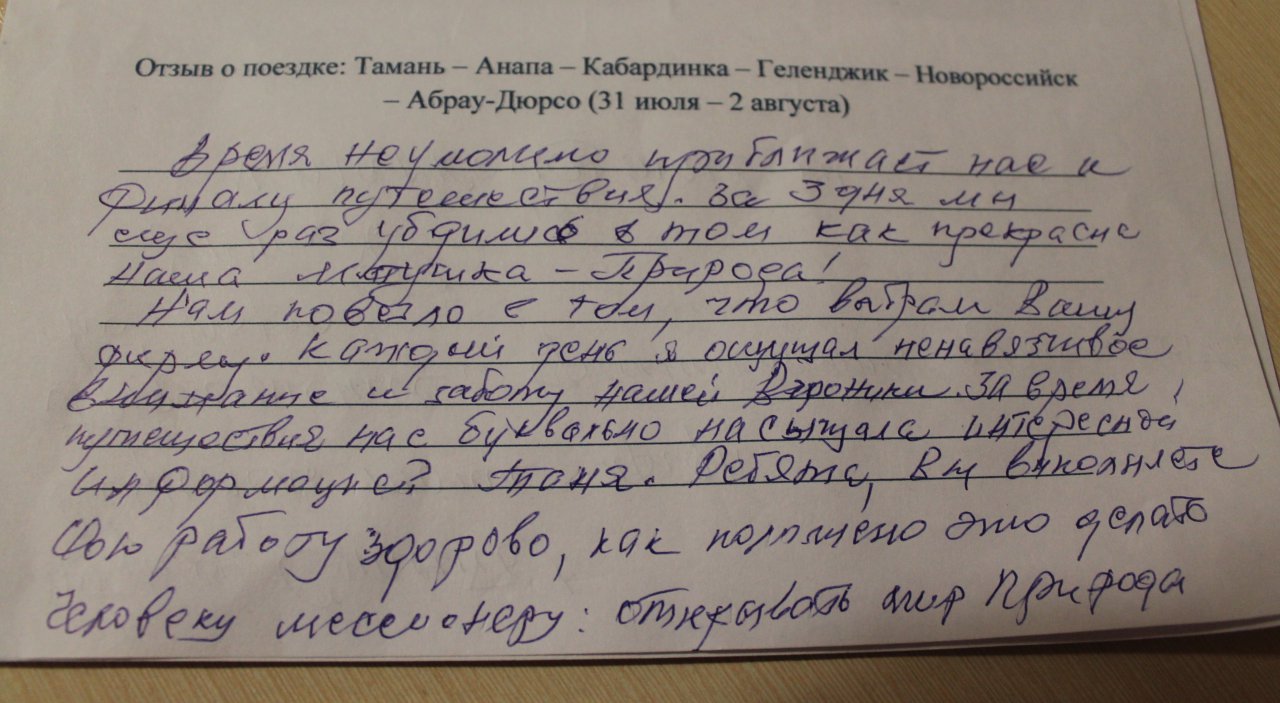 Отзыв о поездке: Тамань – Анапа – Кабардинка – Геленджик – Новороссийск
– Абрау-Дюрсо (31 июля – 2 августа)
Время неумолимо приближает нас к
финалу путешествия. За 3 дня мы
еще раз убедились в том как прекрасна
наша Матушка – Природа!
Нам повезло с тем, что выбрали Вашу
фирму. Каждый день я ощущал ненавязчивое
внимание и заботу нашей Вероники. За время
путешествия нас буквально насыщала интересной
информацией Таня. Ребята, Вы выполняете
свою работу здорово, как положено это делать
Человеку миссионеру: открывать мир Природа